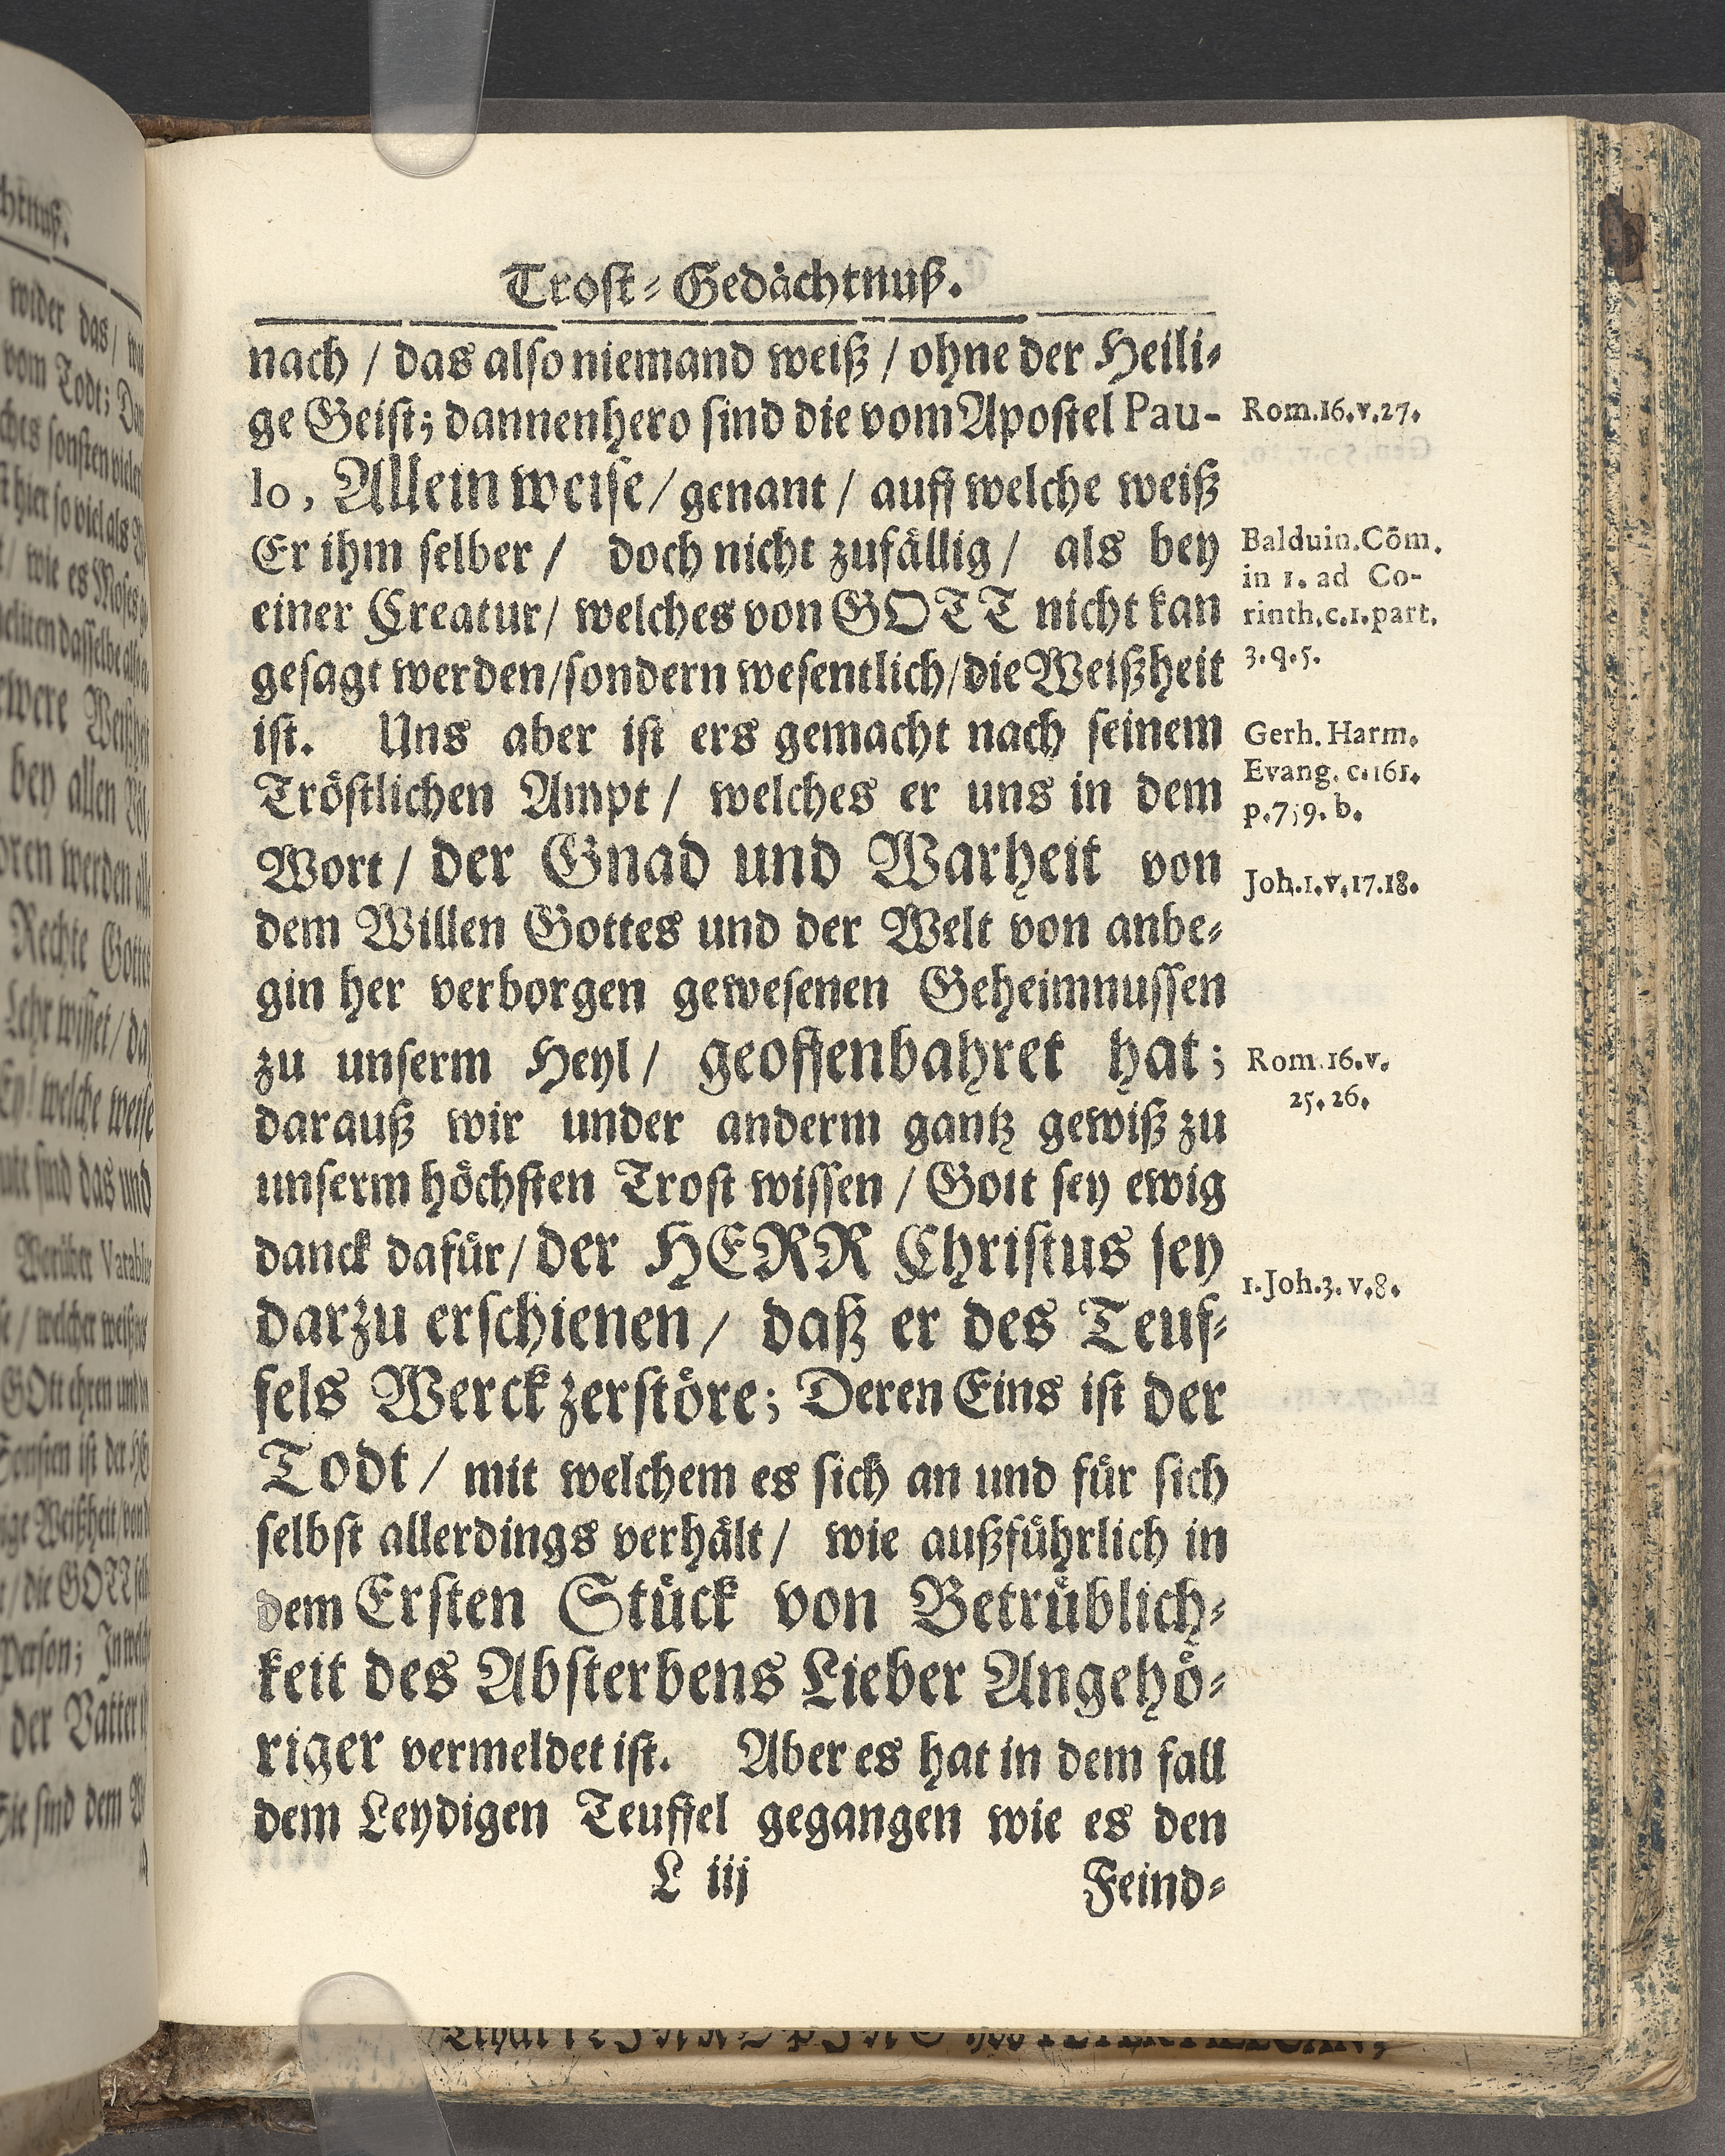 Trost-Gedächtnuß.
nach / das also niemand weiß / ohne der Heili-
ge Geist; dannenhero sind die vom Apostel Pau-
lo, Allein weise / genant / auff welche weiß
Er ihm selber / doch nicht zufällig / als bey
einer Creatur / welches von GOTT nicht kan
gesagt werden / sondern wesentlich / die Weißheit
ist. Uns aber ist ers gemacht nach seinem
Tröstlichen Ampt / welches er uns in dem
Wort / der Gnad und Warheit von
dem Willen Gottes und der Welt von anbe-
gin her verborgen gewesenen Geheimnussen
zu unserm Heyl / geoffenbahret hat;
darauß wir under anderm gantz gewiß zu
unserm höchsten Trost wissen / Gott sey ewig
danck dafür / der HERR Christus sey
darzu erschienen / daß er des Teuf-
fels Werck zerstöre; Deren Eins ist der
Todt / mit welchem es sich an und für sich
selbst allerdings verhält / wie außführlich in
dem Ersten Stück von Betrüblich-
keit des Absterbens Lieber Angehö-
riger vermeldet ist. Aber es hat in dem fall
dem Leydigen Teuffel gegangen wie es den
L iij
Feind-
Rom.16.v.27.
Balduin.Cōm.
in 1. ad Co-
rinth.c.1.part.
3.q.5.
Gerh. Harm.
Evang. c.161.
b.
Joh.1.v.17.18.
Rom.16.v.
25.26.
1.Joh.3.v.8.